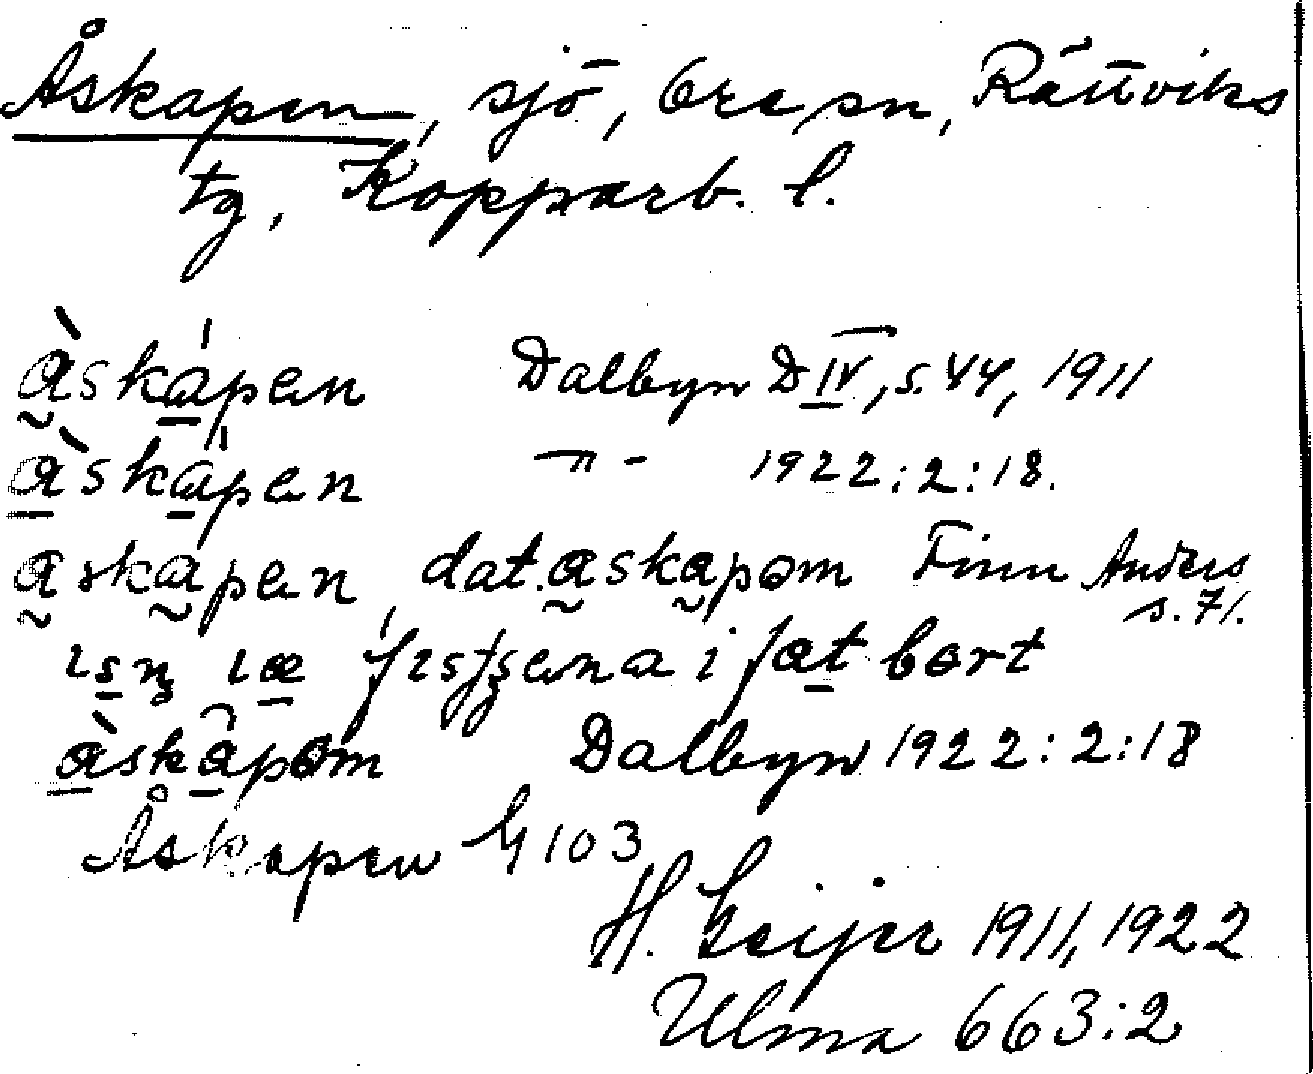 Åskapen, sjö, Ore sn, Rättviks
tg, Kopparb. l.
àskápen Dalbyn D IV, s. 44, 1911
àskápen -"- 1922:2:18.
askapen, dat. askapom Finn Anders
s. 71.
i fat bort
àskâpom Dalbyn 1922:2:18
Åskapen G 103
H. Geijer 1911, 1922
Ulma 663:2